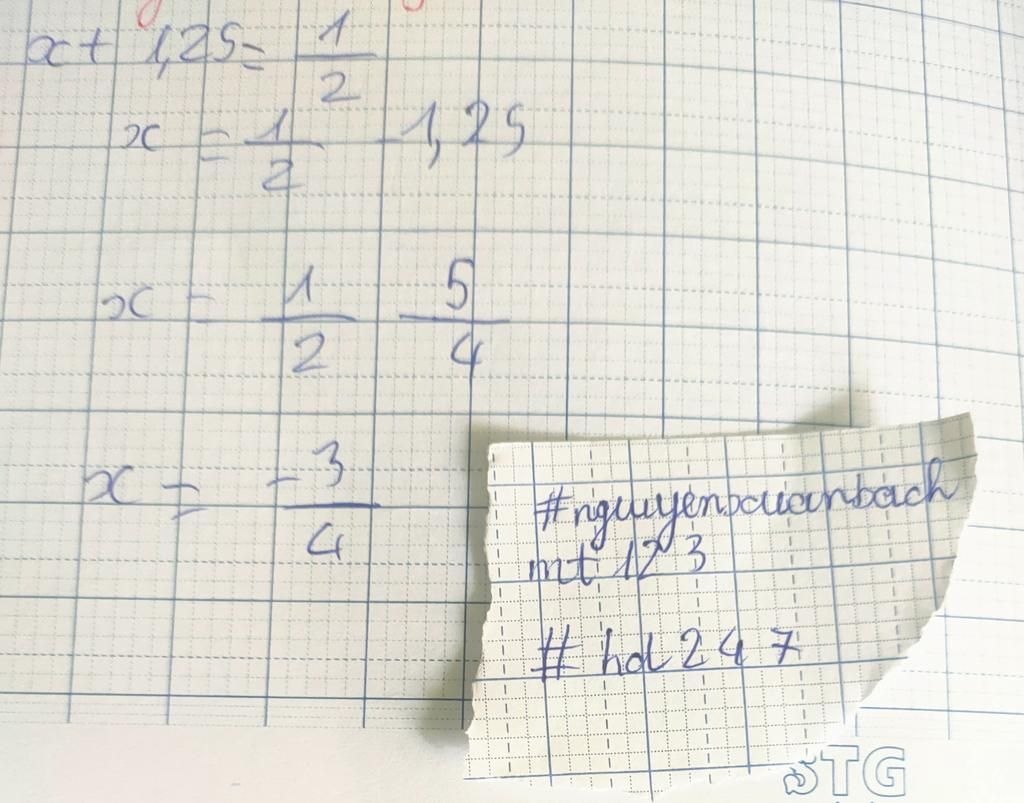 x + 1,25 = 1/2
x = 1/2 - 1,25
x = 1/2 5/4
x = -3/4
#nguyenxuanbach
mt 123
# hd 247
STG